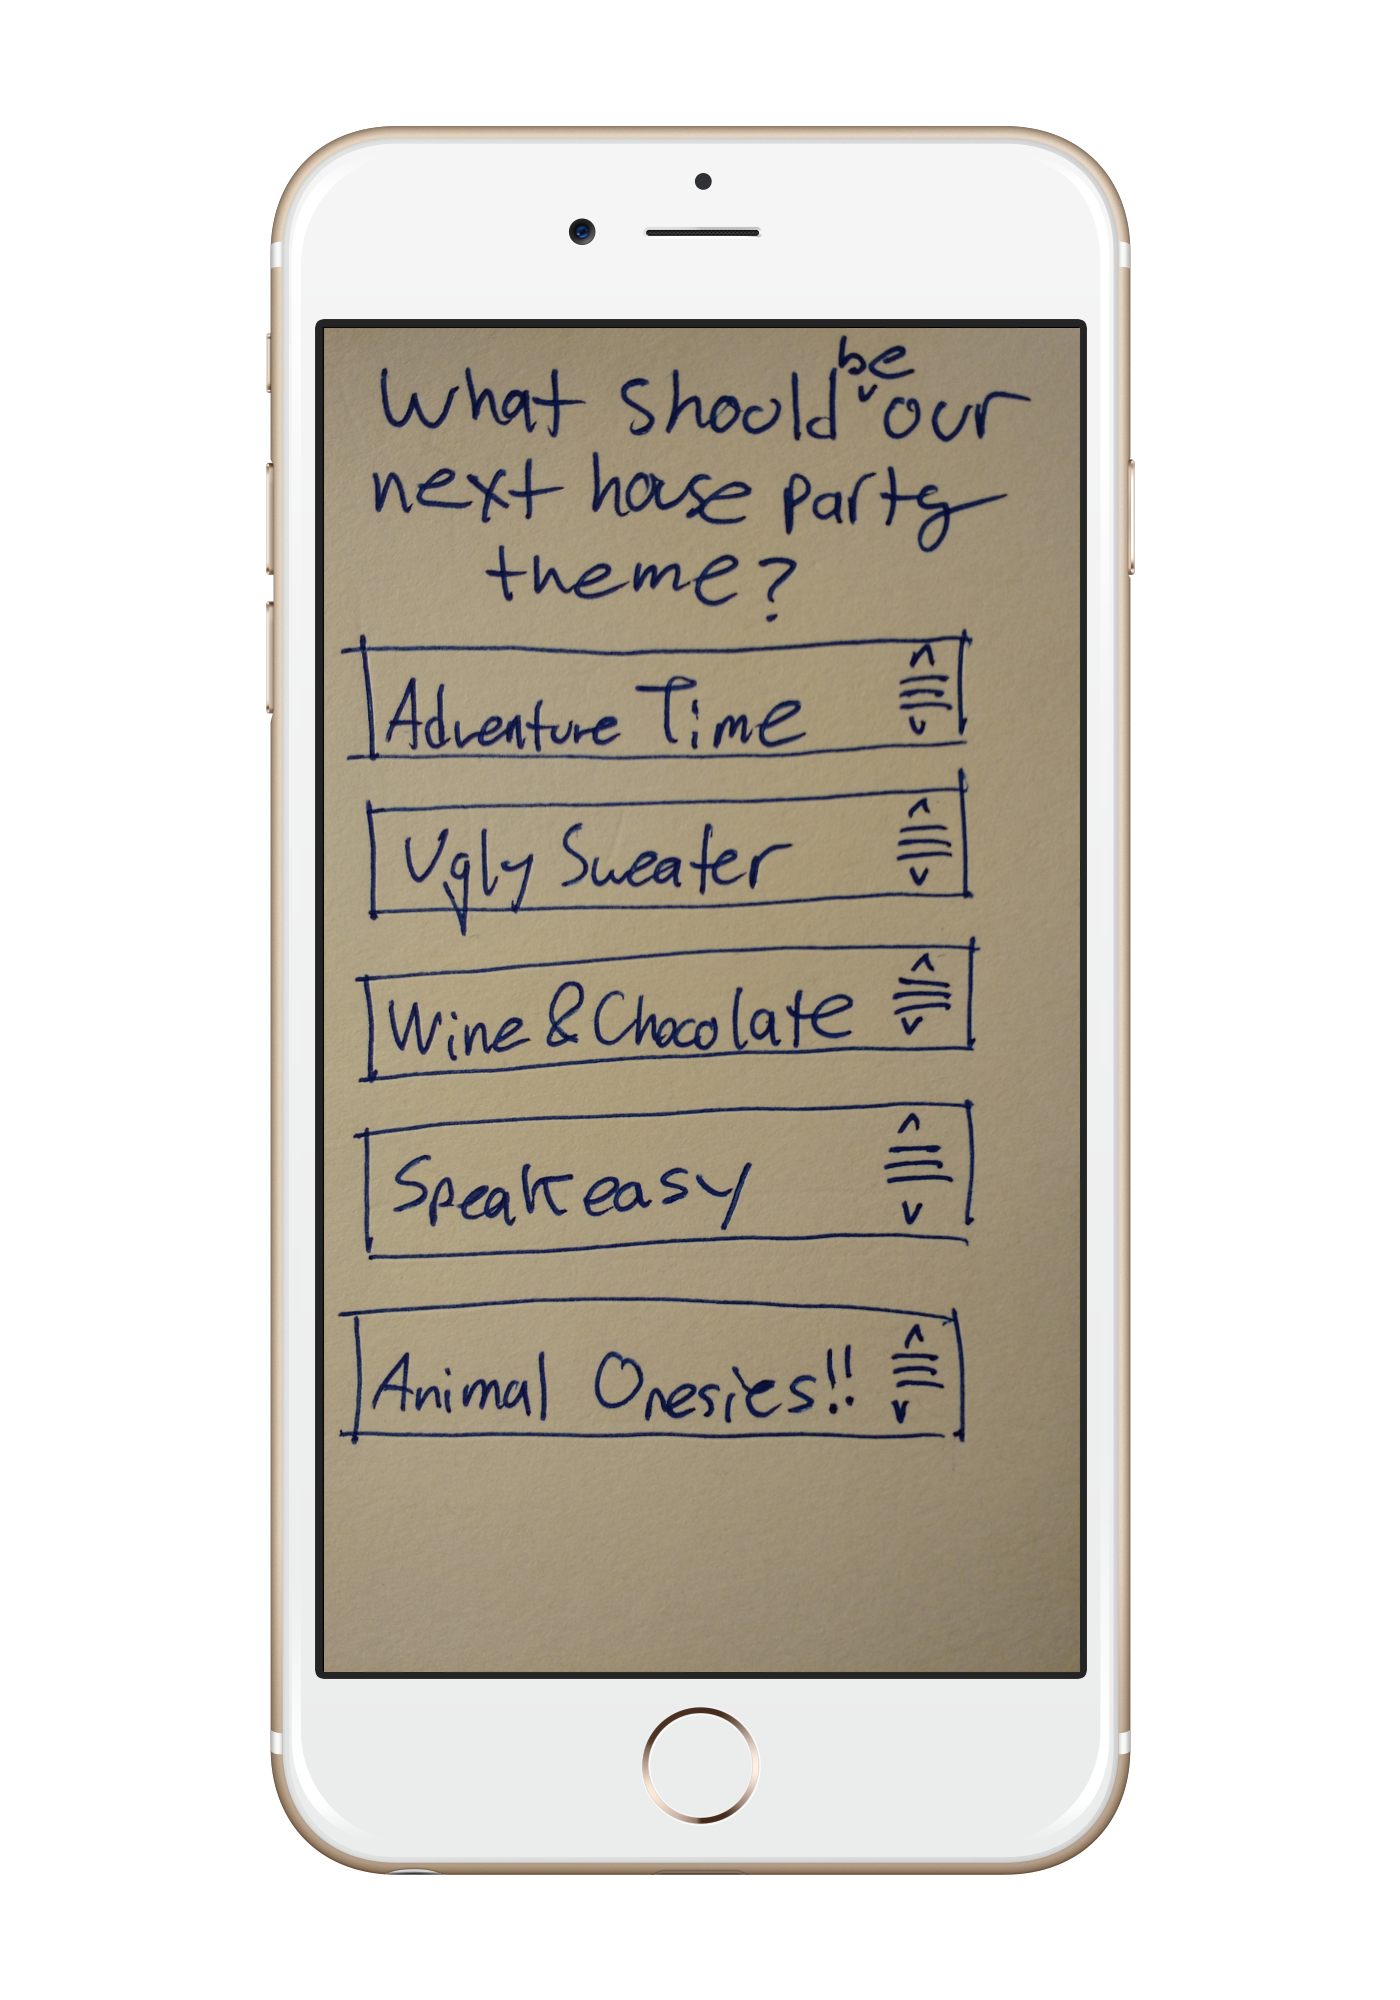 What should be our
next house party
theme?
Adventure Time
Ugly Sweater
Wine & Chocolate
Speakeasy
Animal Onesies!!